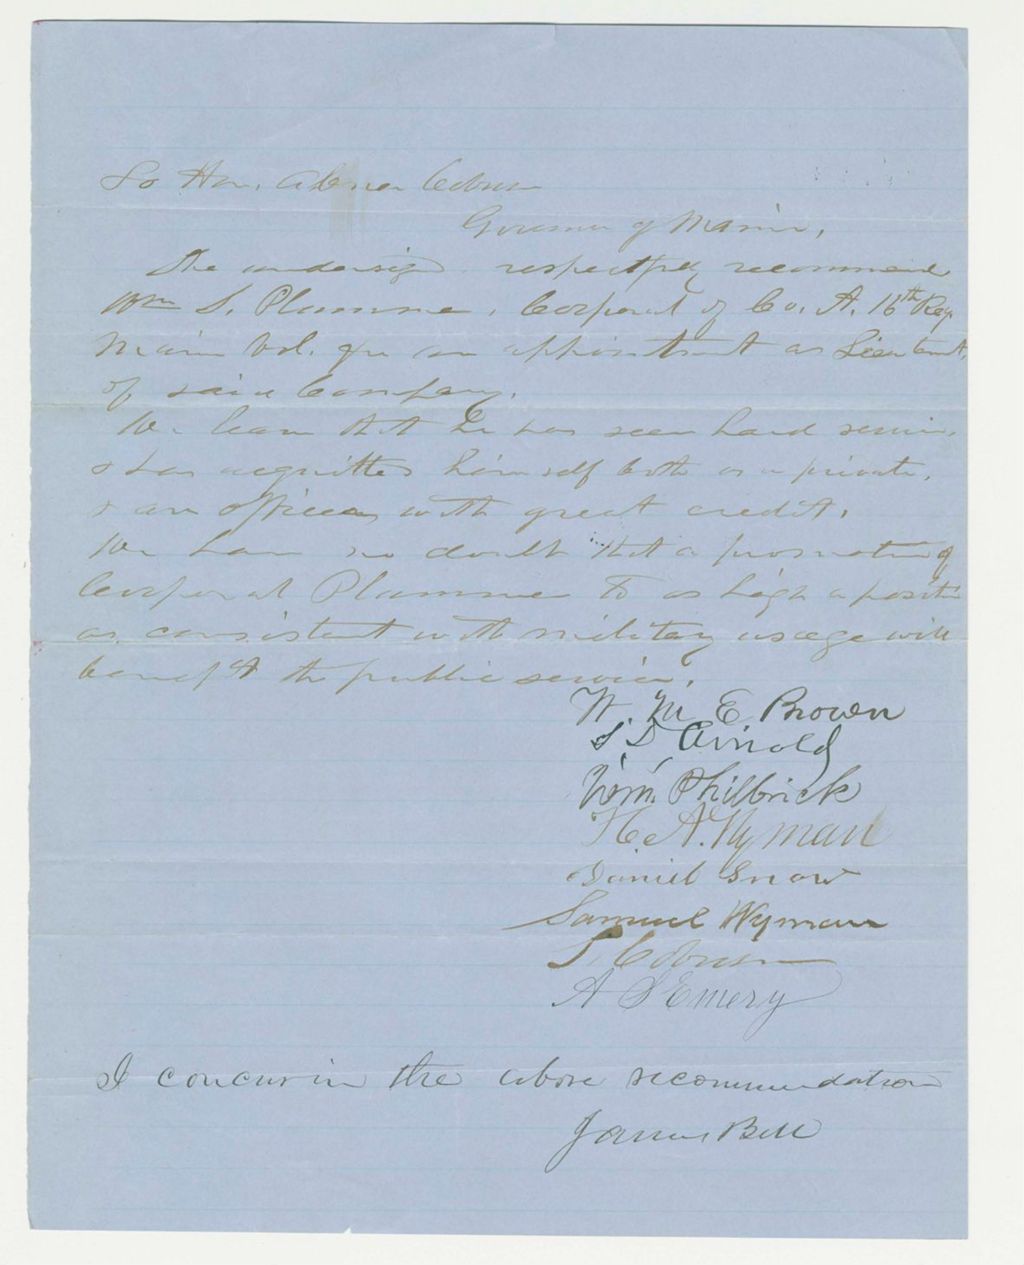 To Hon. Abner Coburn
Governor of Maine,
The undersigned respectfully recommend
Wm S. Plumme, Corporal of Co. A. 16th Reg.
Maine Vol. for an appointment as Lieutenant,
of said Company.
We learn that he has seen hard service,
& has acquitted himself both as a private,
& an officer, with great credit.
We have no doubt that a promotion of
Corporal Plumme to as high a position
as consistent with military usage will
benefit the public service.
W. M. E Brown
S D Arnold
Wm. Philbrick
H. A. Wyman
Daniel Snow
Samuel Wyman
S. Coburn
A S Emery
I concur in the above recommendation
James Bell